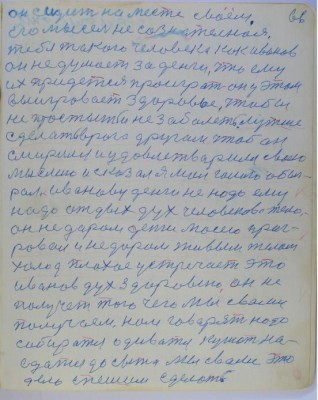 он сидит на месте своём.
66
его мысел не сознательная.
тебя такого человека как иванов
он не думает за деньги, что ему
их придется проиграт он у этом
выигровает здоровье, чтобы
не простыть и не заболеть. лучше
сделать врага другом чтоб он
смирился и удовлетварился свою
мыслию и сказал я мол такого обыг-
рал. иванову деньги не надо ему
надо отдых дух человеков тело.
он не даром дети масло приг-
ровал и недаром живым телом
холод плохое устречает это
иванов дух здоровено, он не
получает того чего мы своим
получаем. нам говорят надо
собиратся одеватся кушат на-
едатся до света мы сваи это
дело спешим сделать